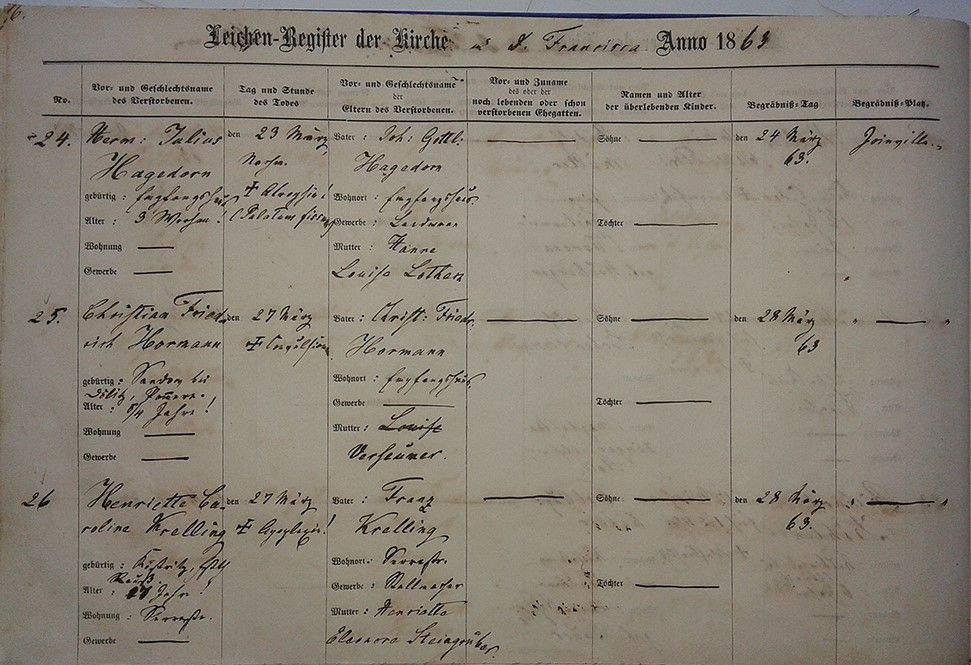 Leichen-Register der Kirche S. Francisca Anno 1863
No.
Vor- und Geschlechtsname
des Verstorbenen.
Tag und Stunde
des Todes
Vor- und Geschlechtsname
der
Eltern des Verstorbenen.
Vor- und Zuname
des oder der
noch lebenden oder schon
verstorbenen Ehegatten.
Namen und Alter
der überlebenden Kinder.
Begräbniß-Tag
Begräbniß-Platz.
24.
Herm: Julius
Hagedorn
gebürtig:
Alter: 3 Wochen!
Wohnung
Gewerbe
den 23 März
Vater: Joh: Gottl:
Hagedorn
Wohnort: Empfangshaus
Gewerbe: Landmann
Mutter: Hanne
Louise
Söhne
Töchter
den 24 März
63.
Joinville.
25.
Christian Fried-
rich Hormann
gebürtig: bei
Alter: 5/4 Jahre!
Wohnung
Gewerbe
den 27 März
Vater: Christ: Friedr.
Hormann
Wohnort: Empfangshaus
Gewerbe
Mutter: Louise
Söhne
Töchter
den 28 März
63
26
Henriette Ca-
roline Krelling
gebürtig: Köstritz,
Reuß
Alter: Jahr!
Wohnung: Serrastr.
Gewerbe
den 27 März
Vater: Franz
Krelling
Wohnort: Serrastr.
Gewerbe: Stellmacher
Mutter: Henriette
Eleonora
Söhne
Töchter
den 28 März
63.